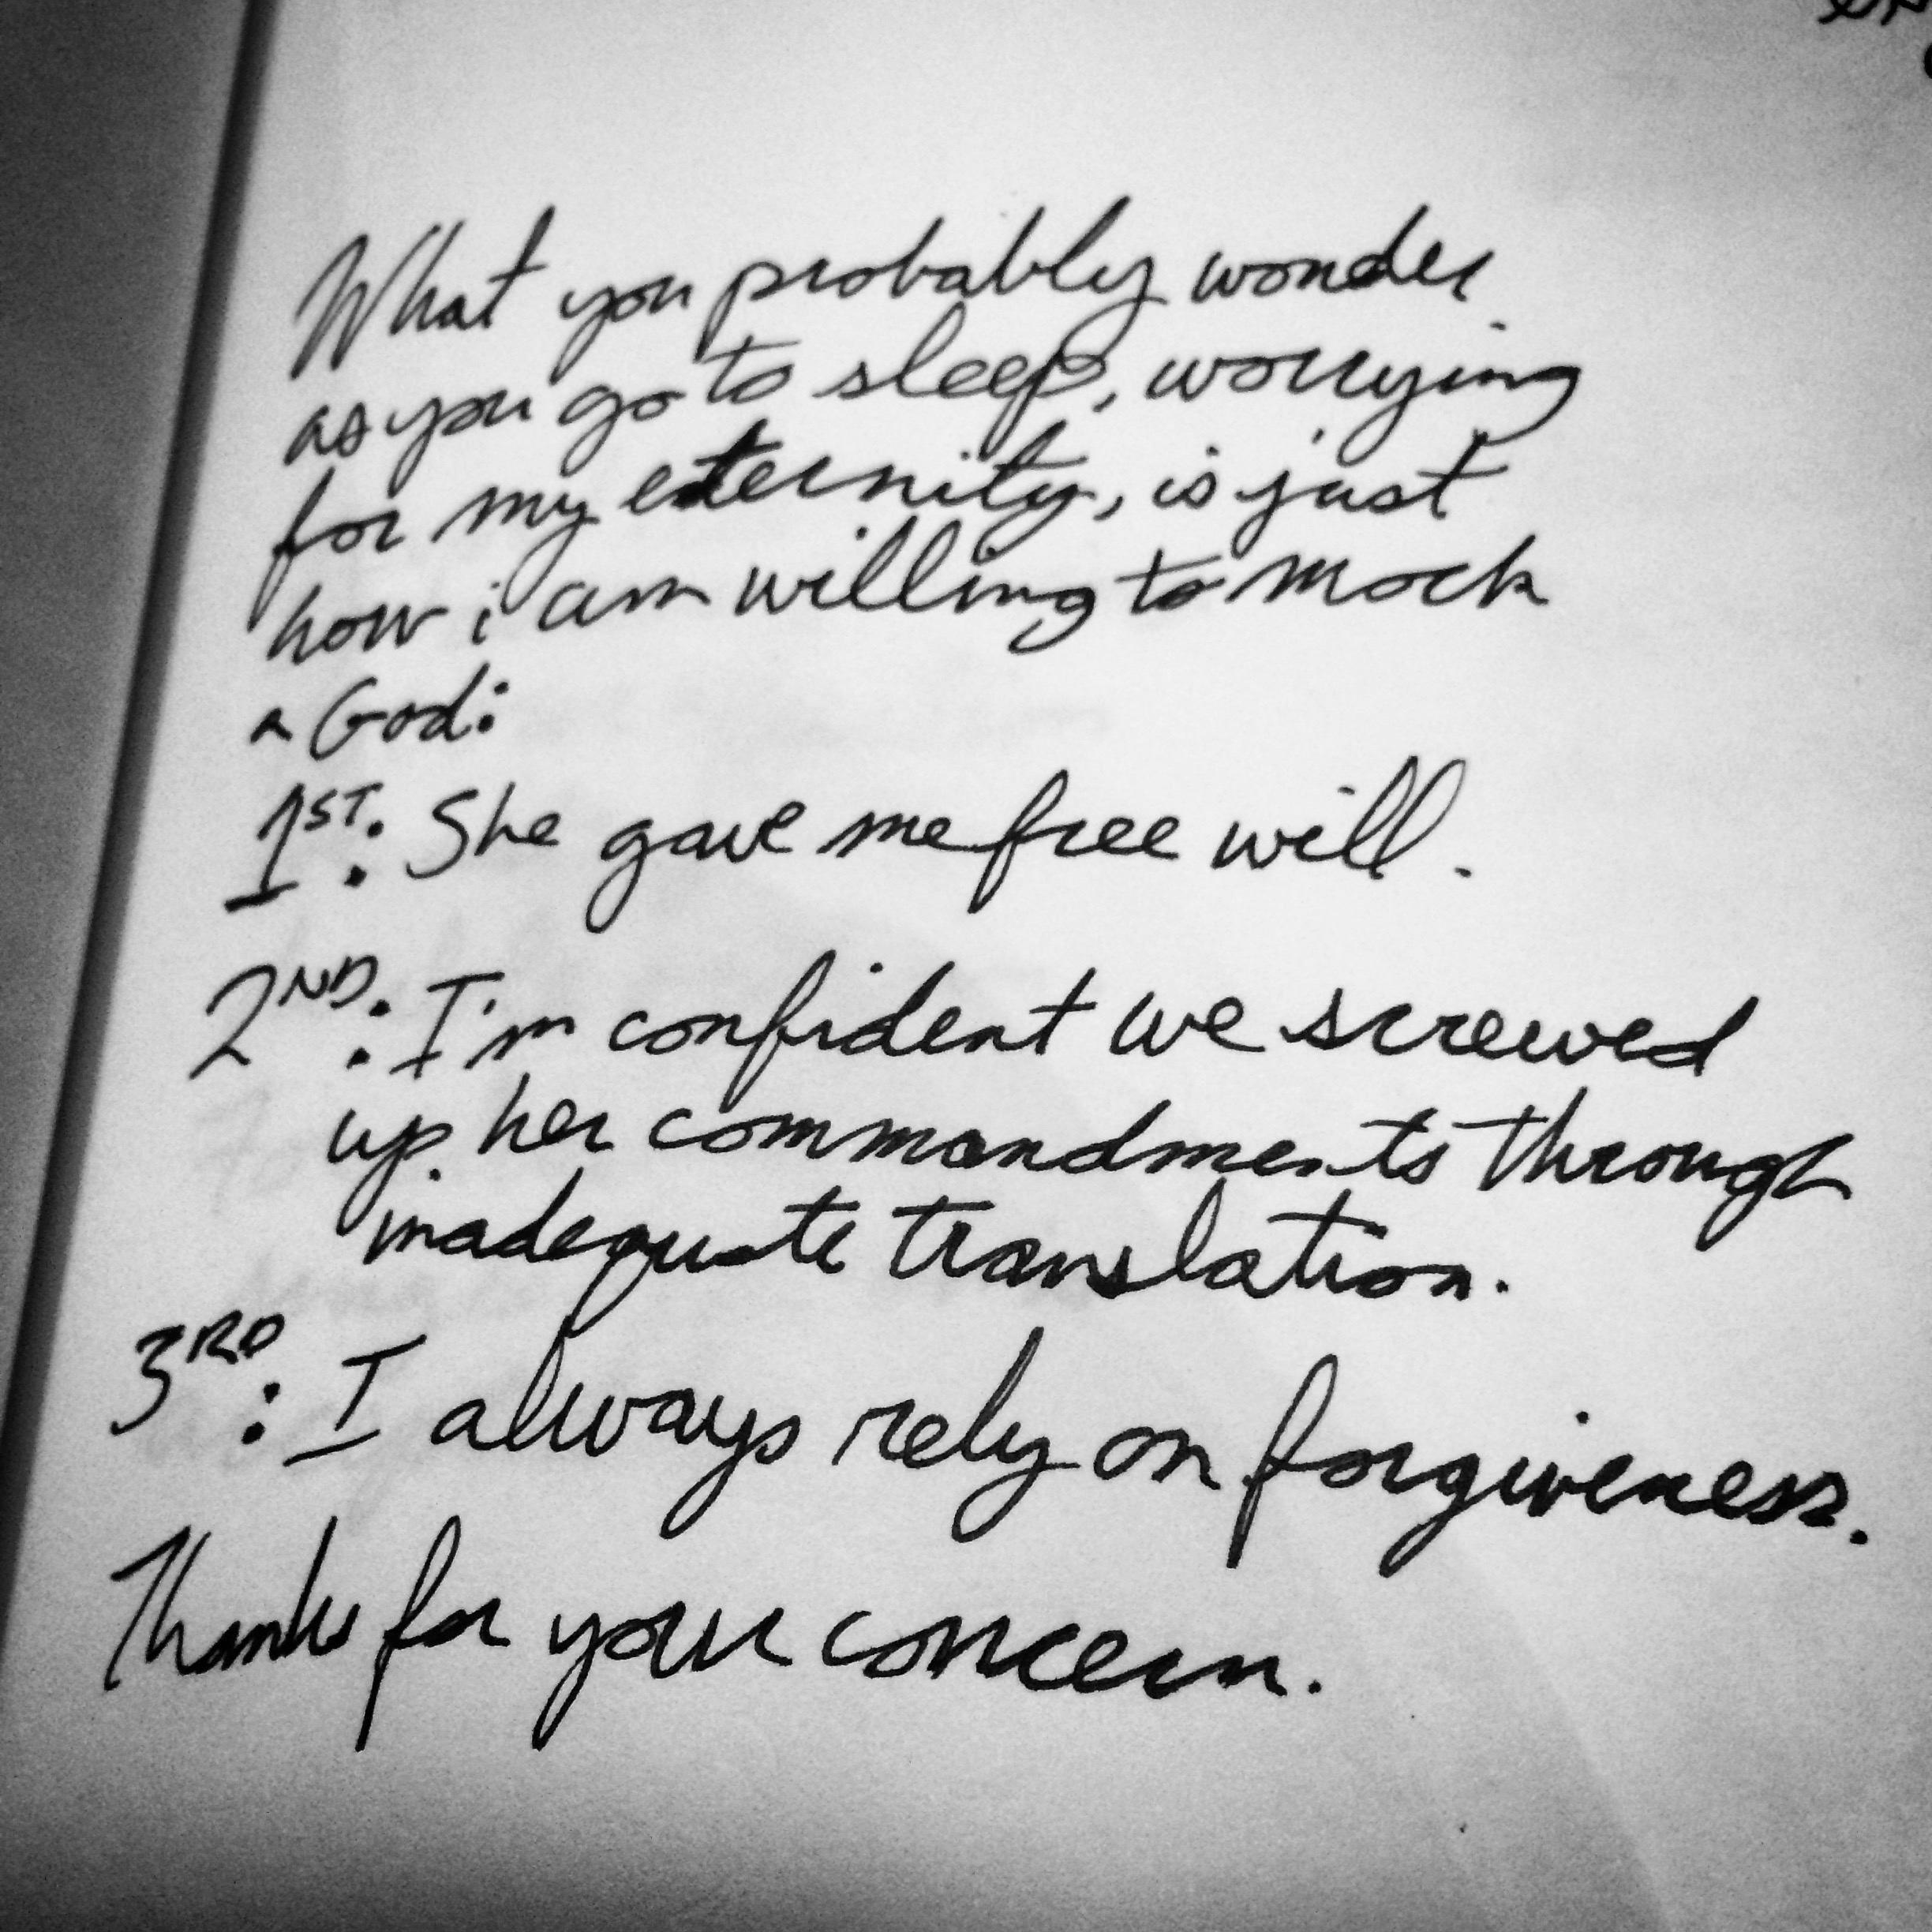 What you probably wonder
as you go to sleep, worrying
for my eternity, is just
how i am willing to mock
a God:
1ST: She gave me free will.
2ND: I'm confident we screwed
up her commandments through
inadequate translation.
3RD: I always rely on forgiveness.
Thanks for your concern.